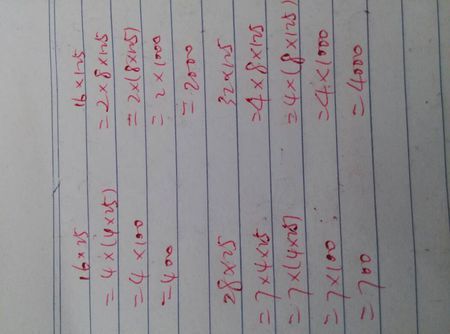 16×25
=4×(4×25)
=4×100
=400
16×125
=2×8×125
=2×(8×125)
=2×1000
=2000
28×25
=7×4×25
=7×(4×25)
=7×100
=700
32×125
=4×8×125
=4×(8×125)
=4×1000
=4000